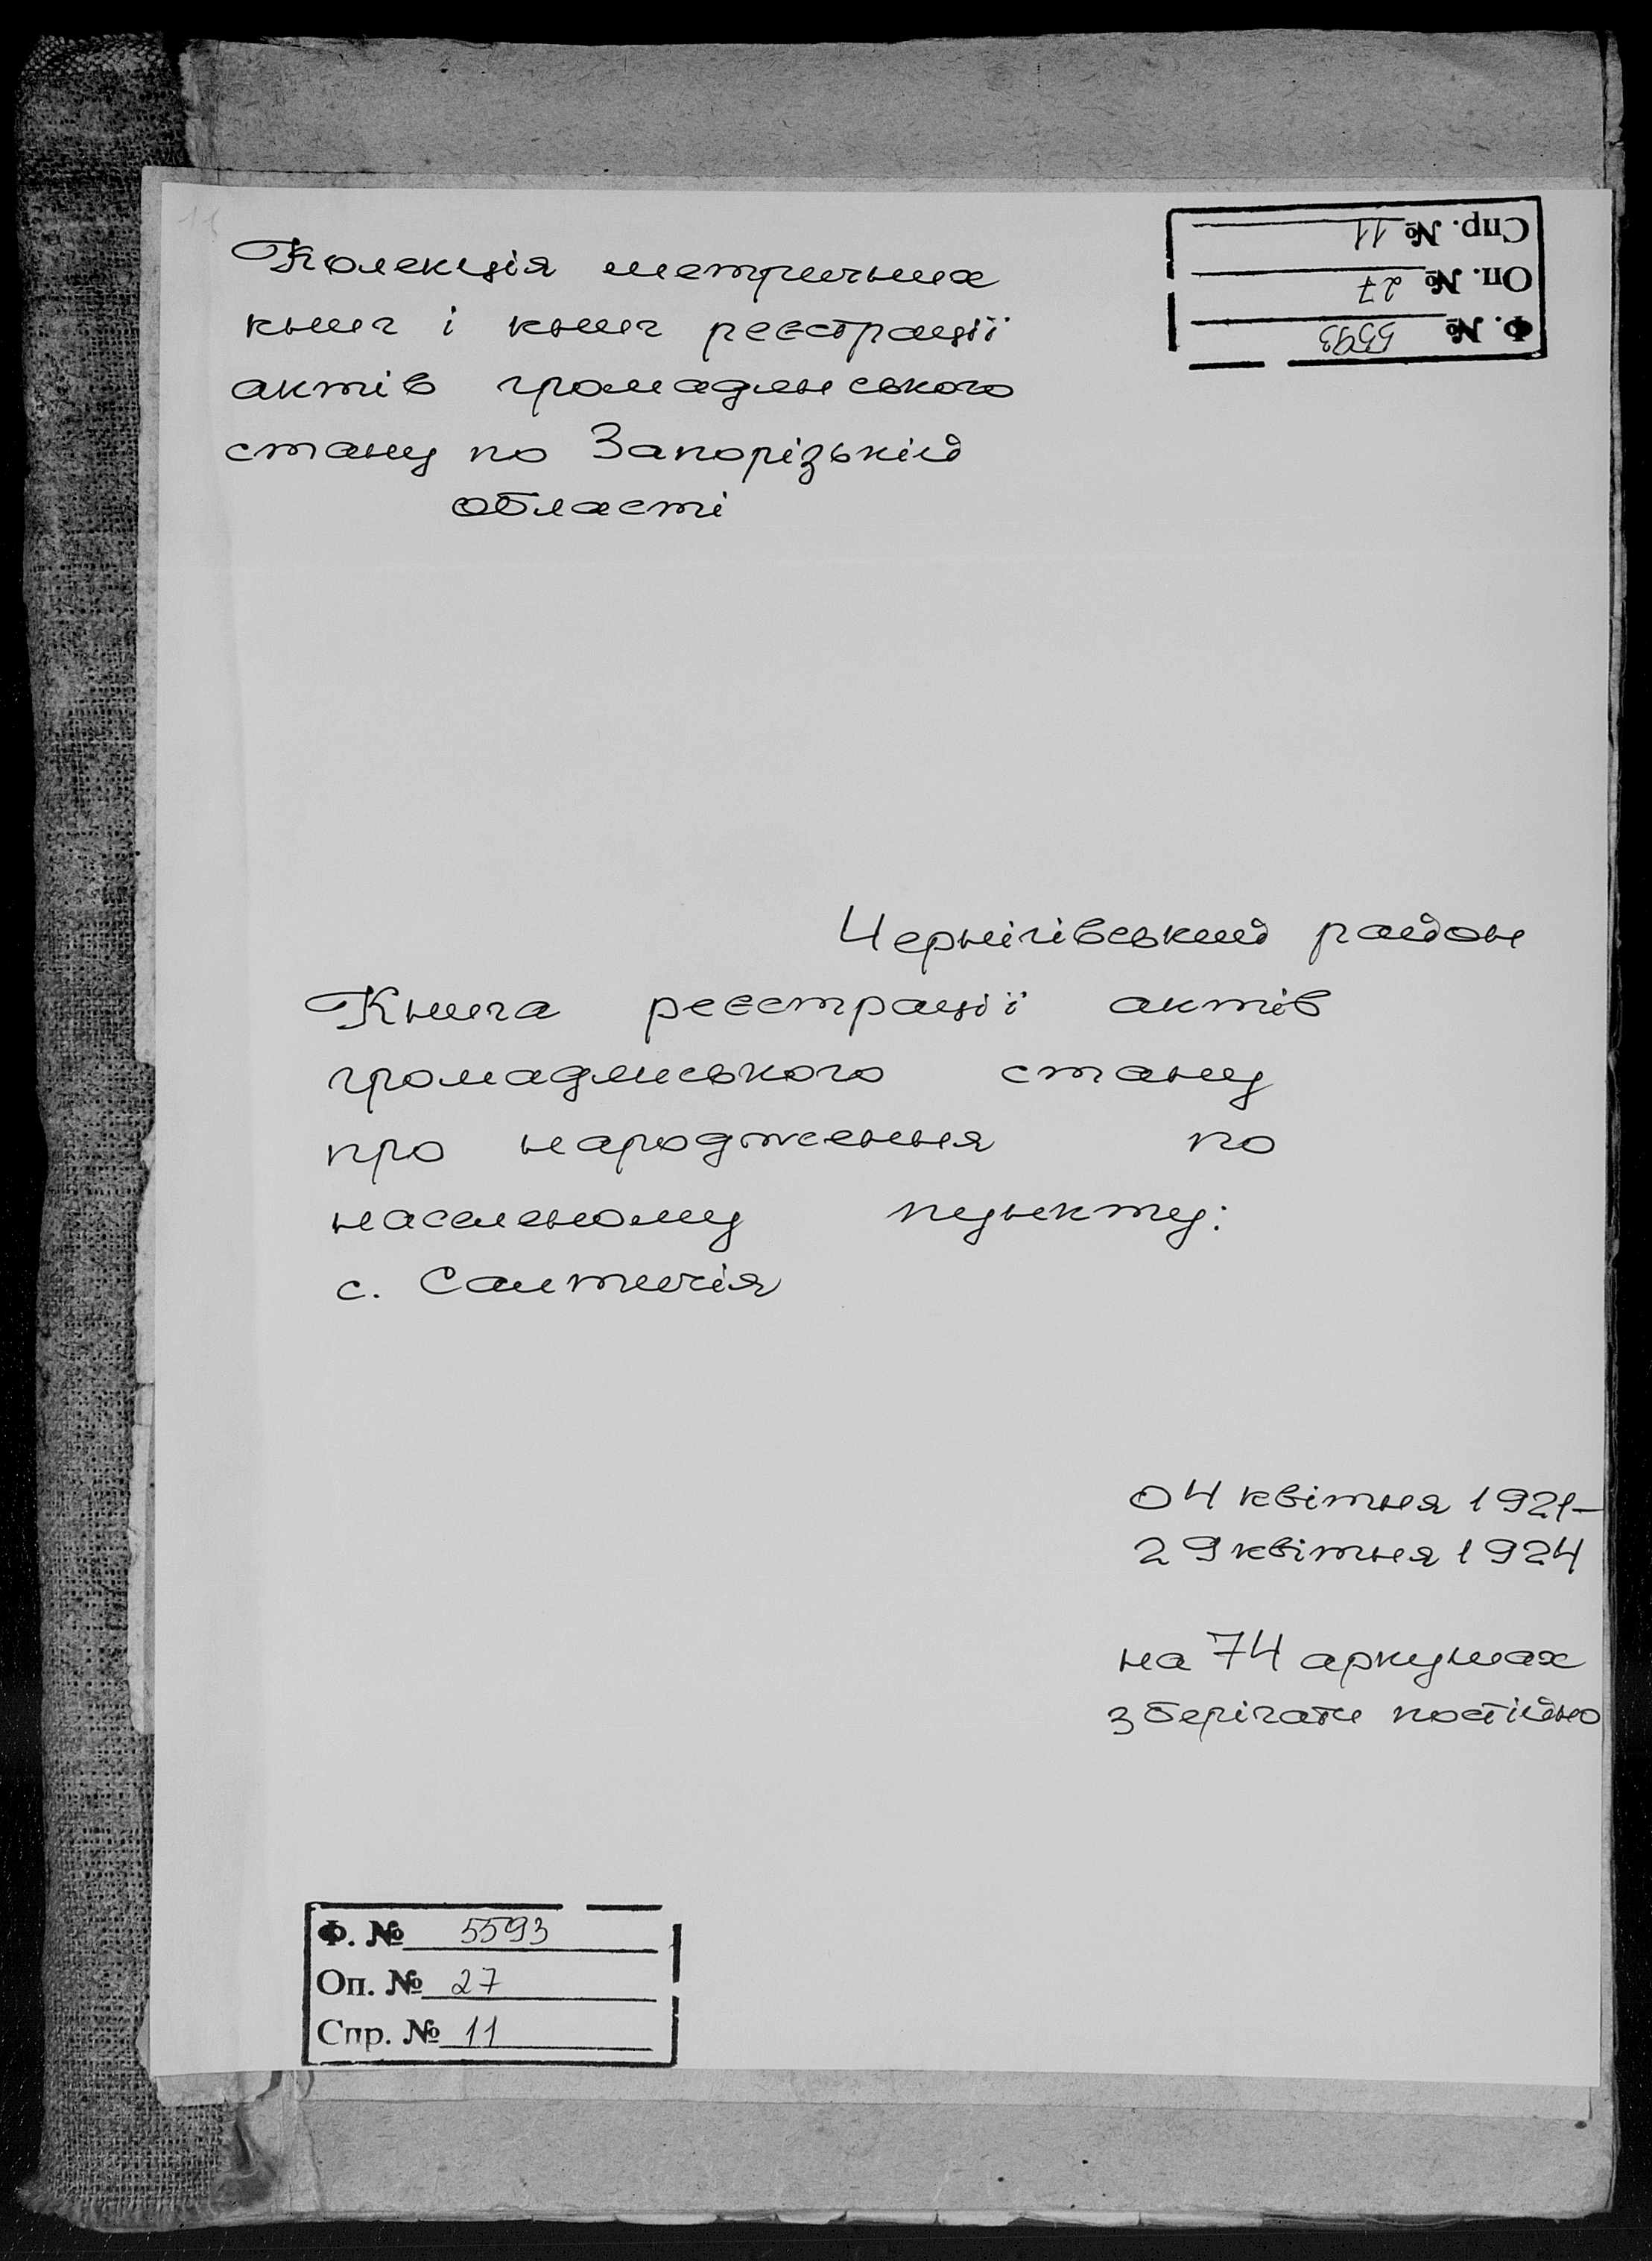 11
Колекція метричних
книг і книг реєстрації
актів громадянського
стану по Запорізькій
області
Спр. № 11
Оп. № 27
Ф. № 5593
Чернігівський район
Книга реєстрації актів
громадянського стану
про народження по
населеному пункту:
с. Салтичія
04 квітня 1921–
29 квітня 1924
на 74 аркушах
зберігати постійно
Ф. № 5593
Оп. № 27
Спр. № 11